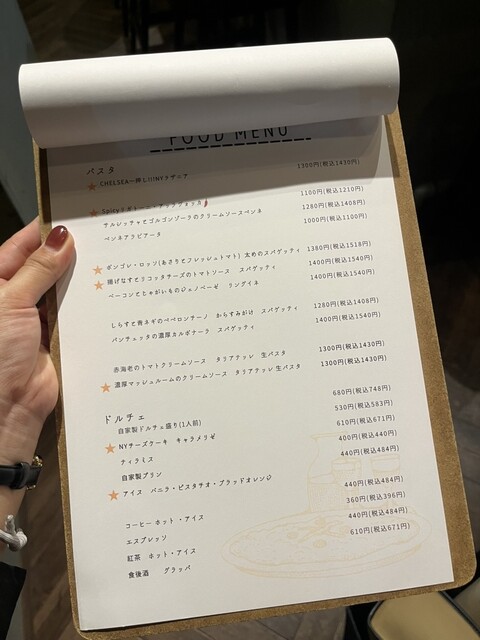 FOOD MENU
パスタ
★CHELSEA一押し!!!NYラザニア 1300円(税込1430円)
★Spicy 1100円(税込1210円)
サルシッチャとゴルゴンゾーラのクリームソースペンネ 1280円(税込1408円)
ペンネアラビアータ 1000円(税込1100円)
★ボンゴレ・ロッソ(あさりとフレッシュトマト) 太めのスパゲッティ 1380円(税込1518円)
★揚げなすとリコッタチーズのトマトソース スパゲッティ 1400円(税込1540円)
ベーコンとじゃがいものジェノベーゼ リングイネ 1400円(税込1540円)
しらすと青ネギのペペロンチーノ からすみがけ スパゲッティ 1280円(税込1408円)
パンチェッタの濃厚カルボナーラ スパゲッティ 1400円(税込1540円)
赤海老のトマトクリームソース タリアテッレ 生パスタ 1300円(税込1430円)
★濃厚マッシュルームのクリームソース タリアテッレ 生パスタ 1300円(税込1430円)
ドルチェ
自家製ドルチェ盛り(1人前) 680円(税込748円)
★NYチーズケーキ キャラメリゼ 530円(税込583円)
ティラミス 610円(税込671円)
自家製プリン 400円(税込440円)
★アイス バニラ・ピスタチオ・ブラッドオレンジ 440円(税込484円)
コーヒー ホット・アイス 440円(税込484円)
エスプレッソ 360円(税込396円)
紅茶 ホット・アイス 440円(税込484円)
食後酒 グラッパ 610円(税込671円)